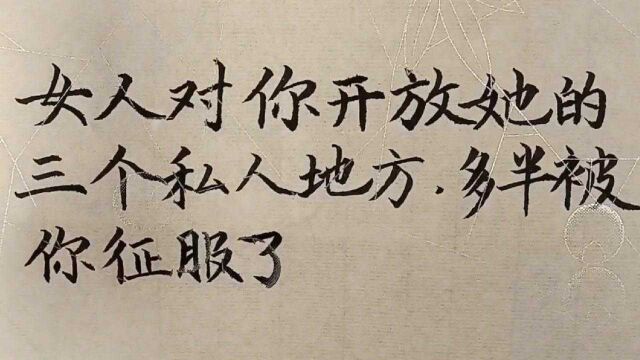 女人对你开放她的
三个私人地方.多半被
你征服了